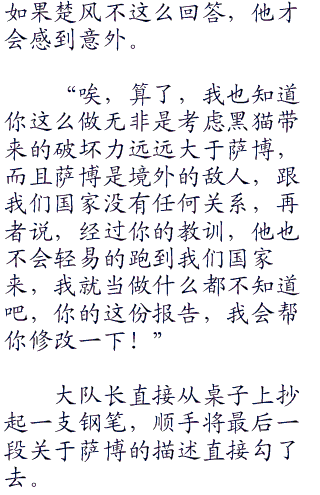 如果楚风不这么回答，他才
会感到意外。
“唉，算了，我也知道
你这么做无非是考虑黑猫带
来的破坏力远远大于萨博，
而且萨博是境外的敌人，跟
我们国家没有任何关系，再
者说，经过你的教训，他也
不会轻易的跑到我们国家
来，我就当做什么都不知道
吧，你的这份报告，我会帮
你修改一下！”
大队长直接从桌子上抄
起一支钢笔，顺手将最后一
段关于萨博的描述直接勾了
去。